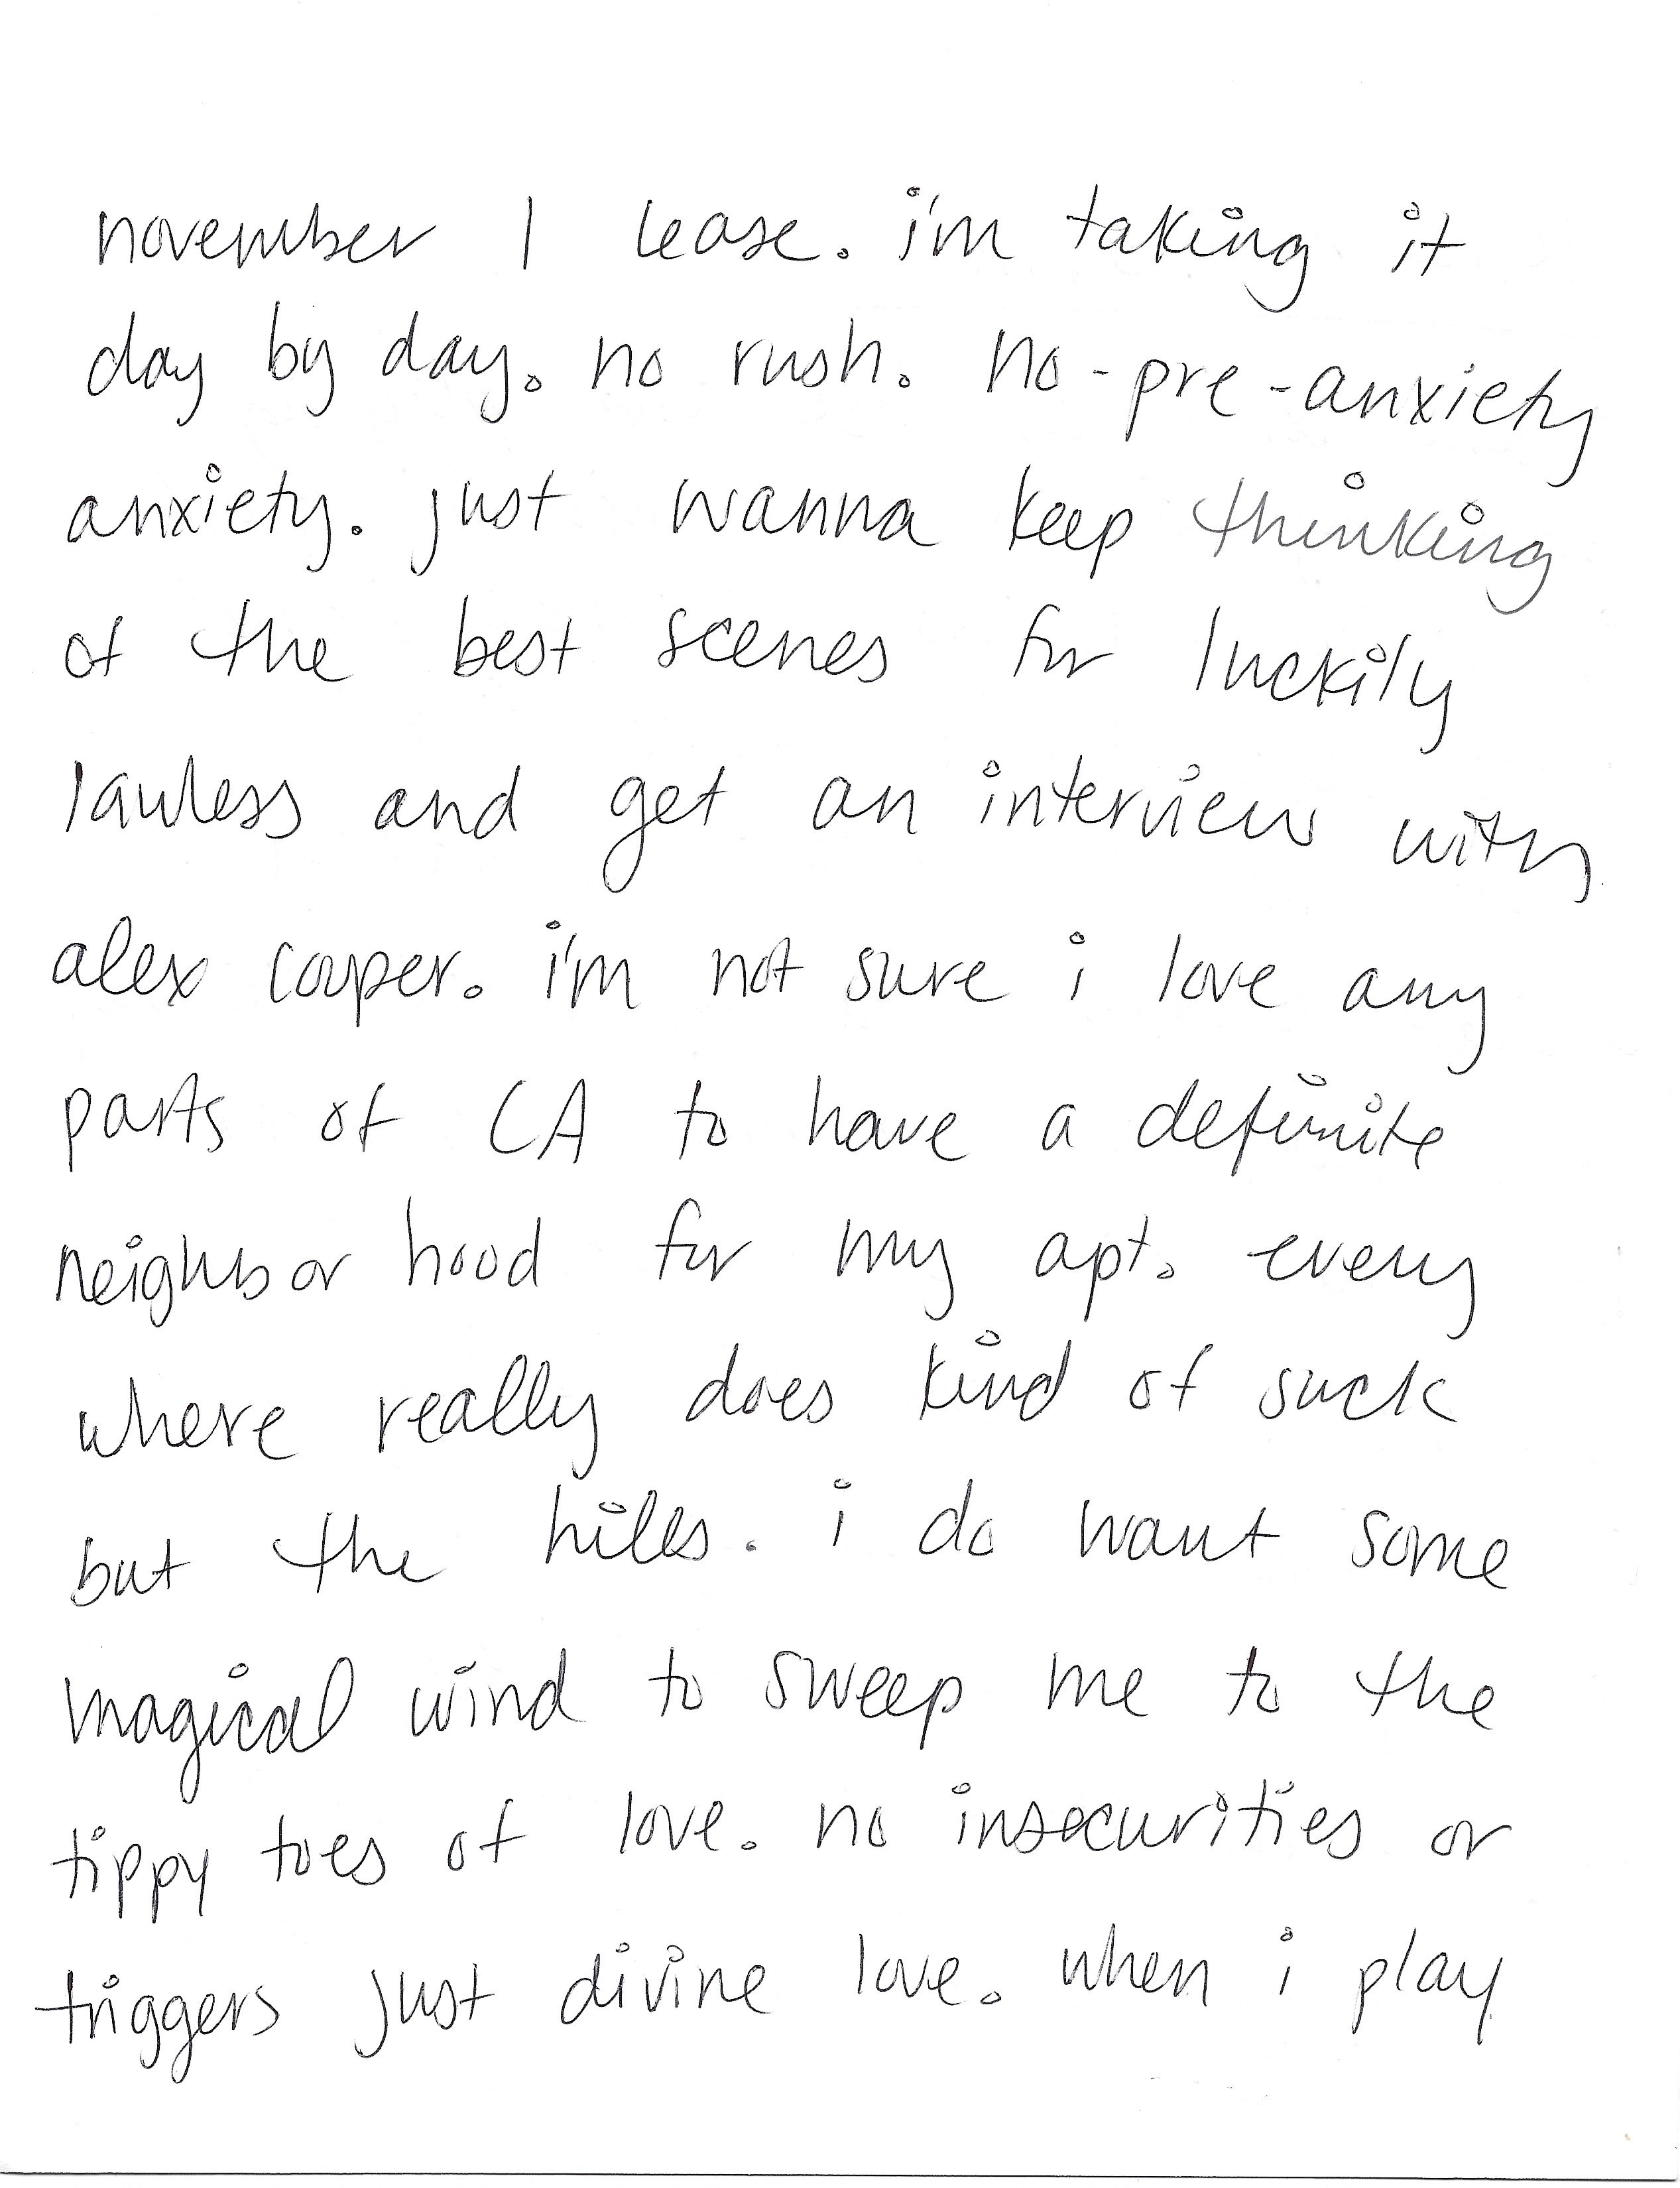 november 1 lease. i'm taking it
day by day. no rush. no-pre-anxiety
anxiety. just wanna keep thinking
of the best scenes for luckily
lawless and get an interview with
alex cooper. i'm not sure i love any
parts of CA to have a definite
neighbor hood for my apt. every
where really does kind of suck
but the hills. i do want some
magical wind to sweep me to the
tippy toes of love. no insecurities or
triggers just divine love. when i play